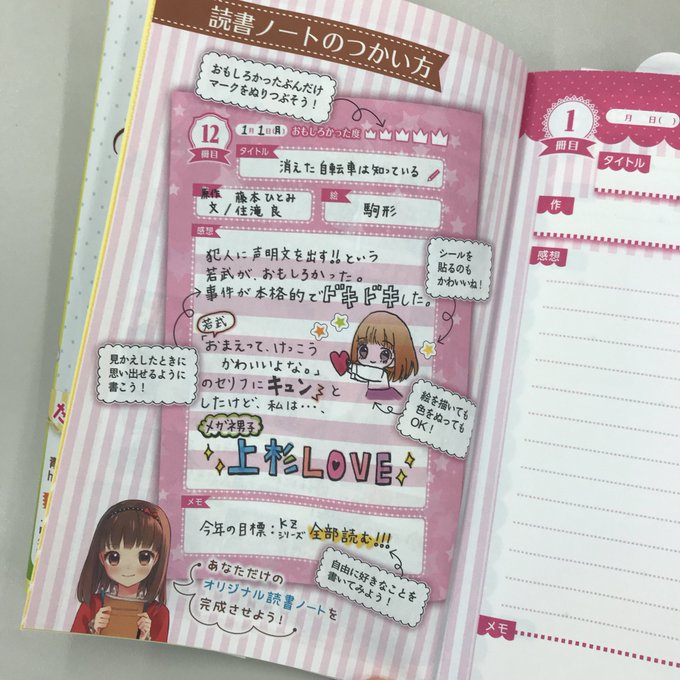 読書ノートのつかい方
おもしろかったぶんだけ
マークをぬりつぶそう！
12
冊目
1月1日(月)
おもしろかった度
タイトル
消えた自転車は知っている
原作 藤本ひとみ
文/住滝良
絵
駒形
感想
犯人に声明文を出す!!という
若武が、おもしろかった。
事件が本格的でドキドキした。
シールを
貼るのも
かわいいね！
若武
「おまえって、けっこう
かわいいよな。」
のセリフにキュンと
したけど、私は…、
見かえしたときに
思い出せるように
書こう！
絵を描いても
色をぬっても
OK！
メガネ男子
上杉LOVE
メモ
今年の目標：KZシリーズ全部読む!!!
自由に好きなことを
書いてみよう！
あなただけの
オリジナル読書ノートを
完成させよう！
1
冊目
月 日( )
タイトル
作
感想
メモ